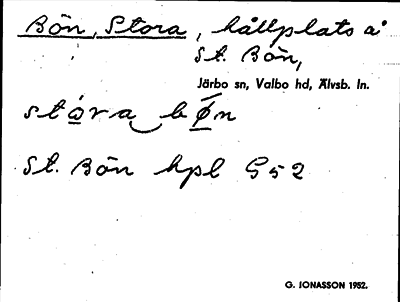 Bön, Stora, hållplats å
St. Bön,
Järbo sn, Valbo hd, Älvsb. ln.
stora bøn
St. Bön hpl G52
G. JONASSON 1952.